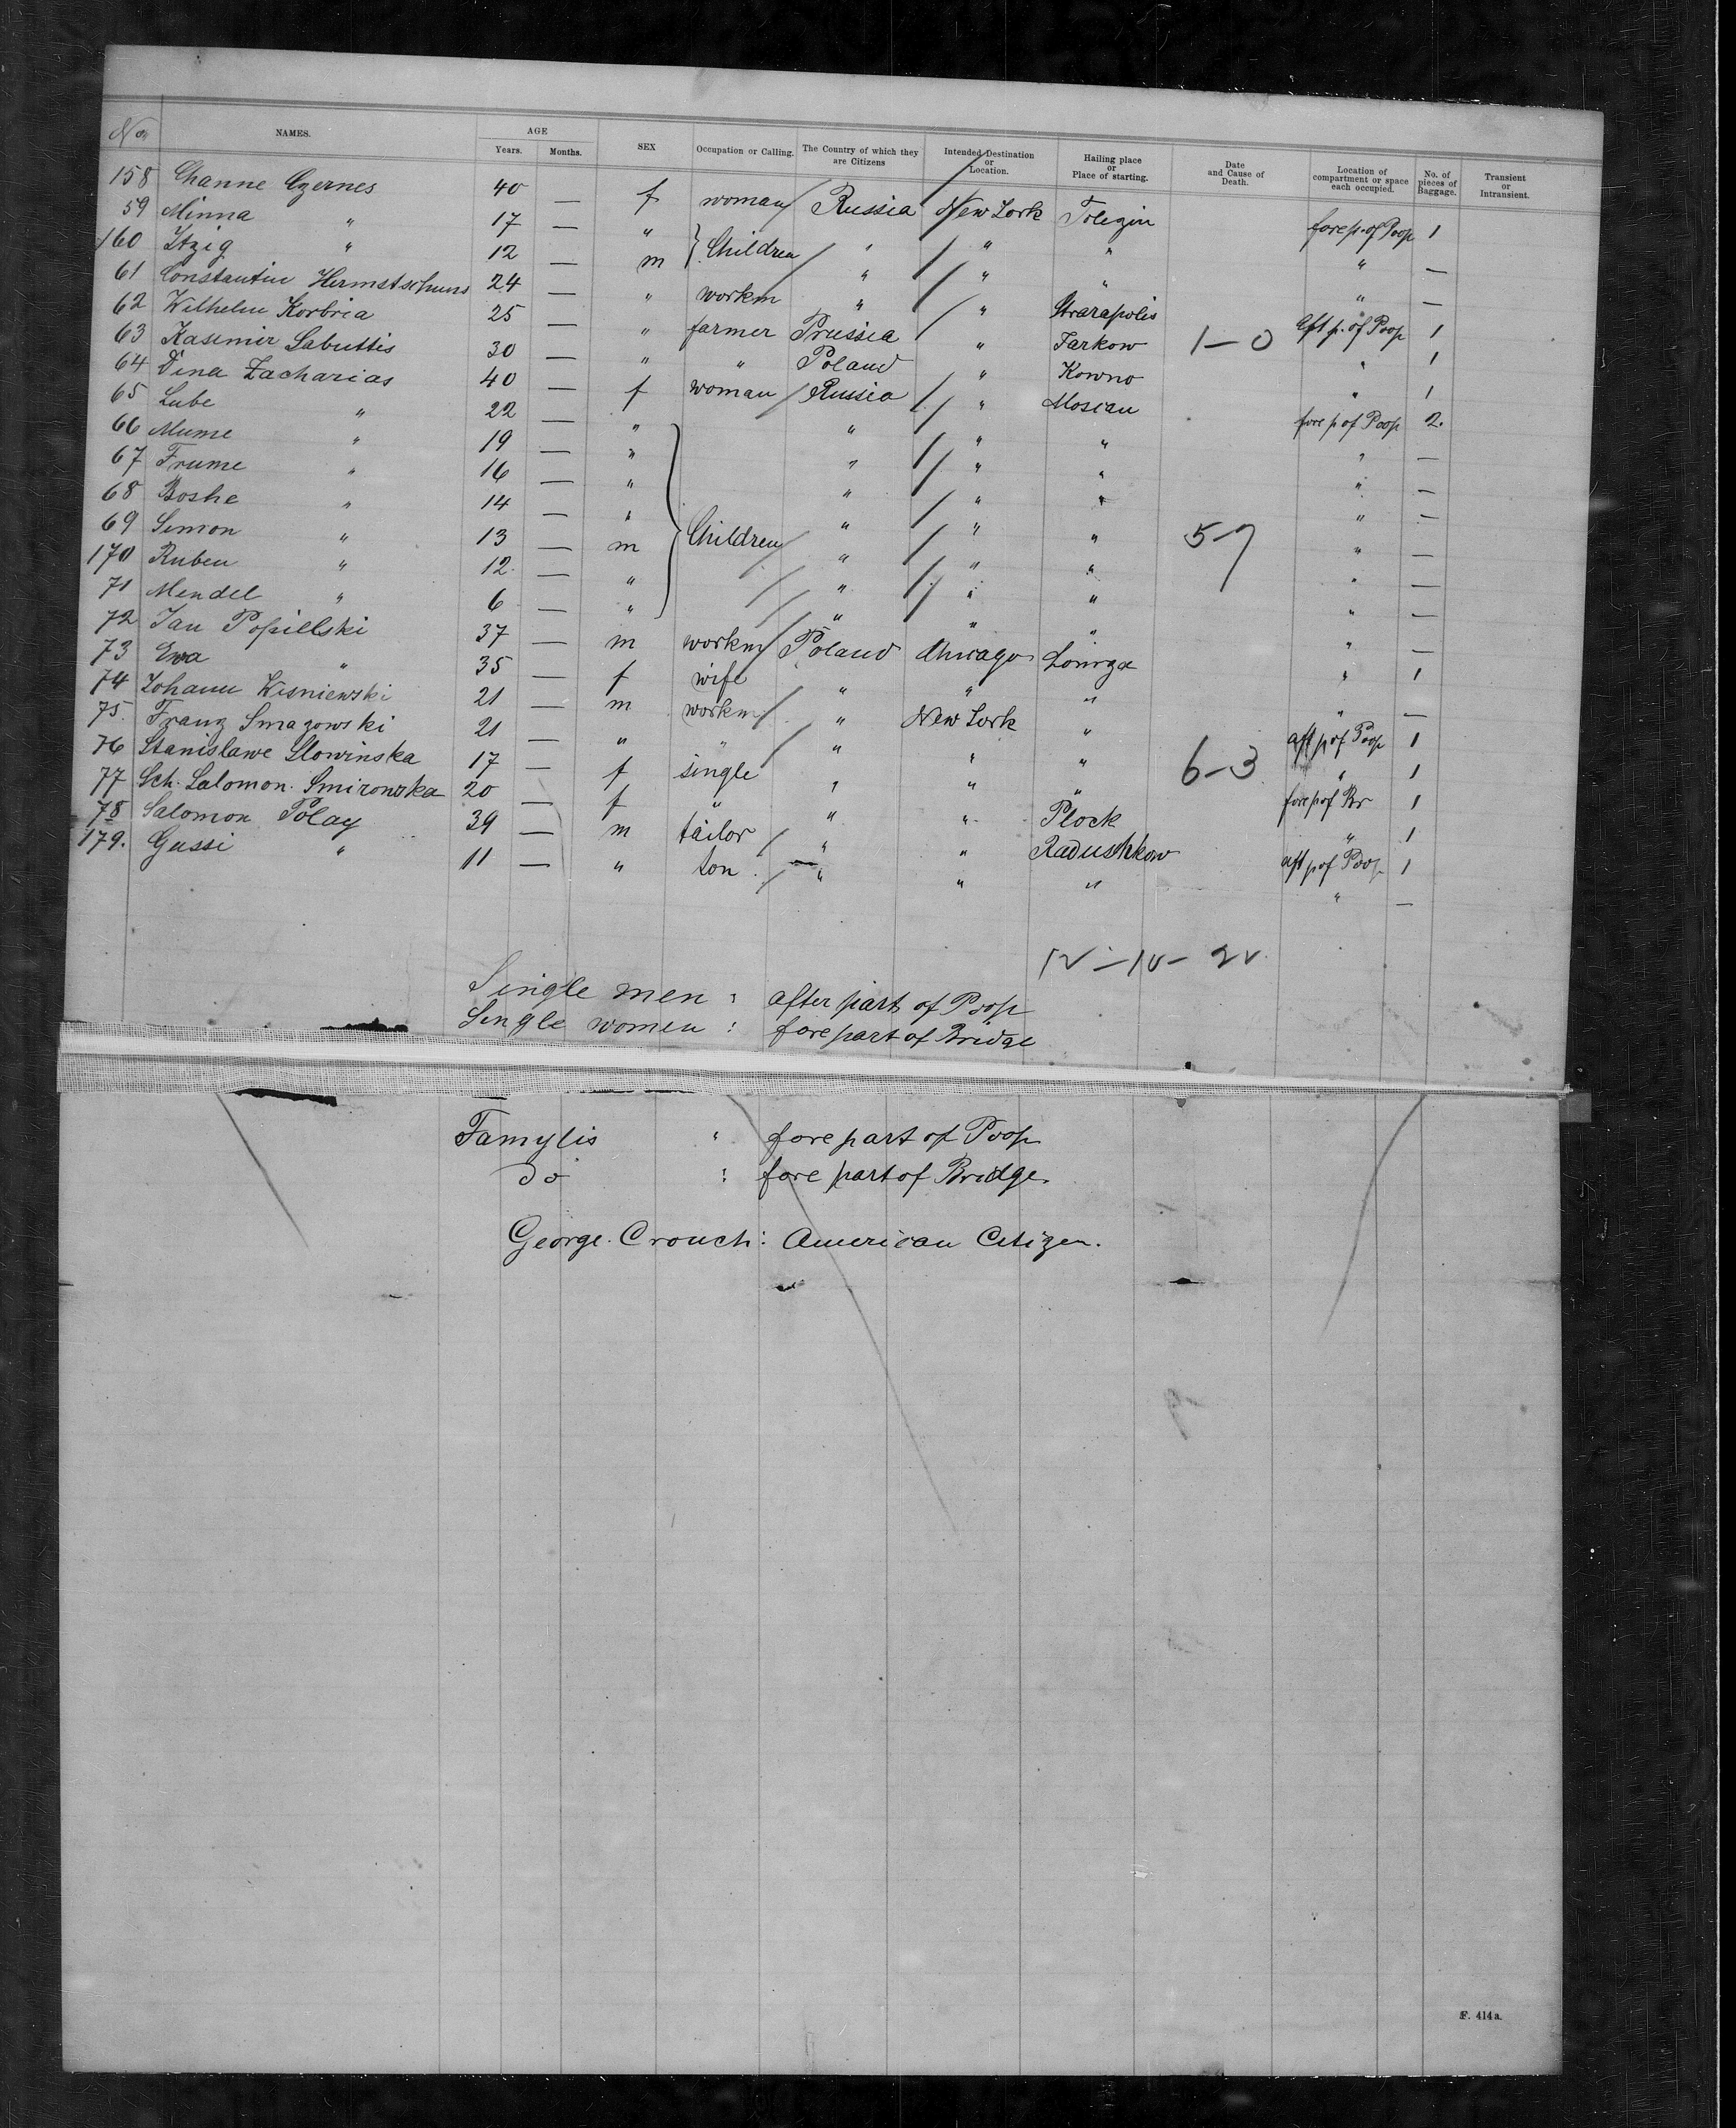 No. NAMES. AGE Years. Months. SEX Occupation or Calling. The Country of which they are Citizens Intended Destination or Location. Hailing place or Place of starting. Date and Cause of Death. Location of compartment or space each occupied. No. of pieces of Baggage. Transient or Intransient.
158 Channe Czernes 40 — f woman Russia New York Tolezin fore p. of Poop 1
59 Minna " 17 — " } Children " " " " —
160 Itzig " 12 — m " " " " —
61 Constantin 24 — " workm " " aft p. of Poop 1
62 Wilhelm Korbria 25 — " farmer Prussia " Farkow 1-0 " 1
63 Kasemir Labuttis 30 — " " Poland " Kowno " 1
64 Dina Zacharias 40 — f woman Russia " Mosian fore p of Poop 2.
65 Lube " 22 — " " " " " —
66 Mume " 19 — " " " " " —
67 Frume " 16 — " " " " " —
68 Boshe " 14 — " Children " " " 5-7 " —
69 Simon " 13 — m " " " " —
170 Ruben " 12 — " " " " " —
71 Mendel " 6 — " " " " " —
72 Jan Popillski 37 — m workm Poland Chicago Lomza " 1
73 Ewa " 35 — f wife " " " " —
74 Johann Wisniewski 21 — m workm " New York " aft p of Poop 1
75. Franz Smazowski 21 — " " " " " 6-3 " 1
76 Stanislawe Slowinska 17 — f single " " " fore p of Br 1
77 Sch. Salomon Smironska 20 — f " " " Plock " 1
78 Salomon Polay 39 — m tailor " " Radushkow aft p of Poop 1
179. Gussi " 11 — " son " " " " —
Single men : after part of Poop
Single women : fore part of Bridge
Famylis " fore part of Poop
do : fore part of Bridge.
George Crouch : American Citizen.
F. 414a.